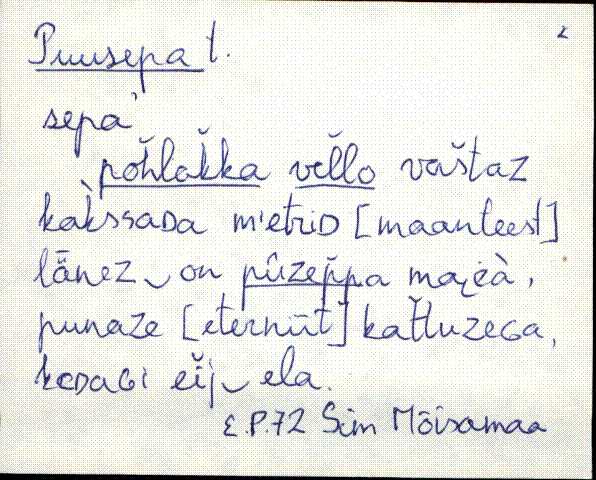 2
Puusepa t.
sepa'
pŏȟlaǩka vĕl̆lo vaštaz
kàk̀ssaᴅa m'etriᴅ [maanteest]
länez‿on pûzep̆pa maʐèà,
punaze [eterniit] kat̆tuzeɢa,
keᴅaɢi eĭj‿ela.
E.P.72 Sim Mõisamaa